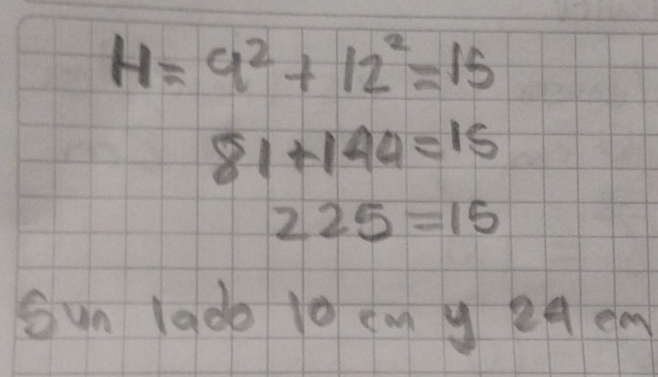 H = 9² + 12² = 15
81 + 144 = 15
225 = 15
Sun lado 10 cm y 24 cm